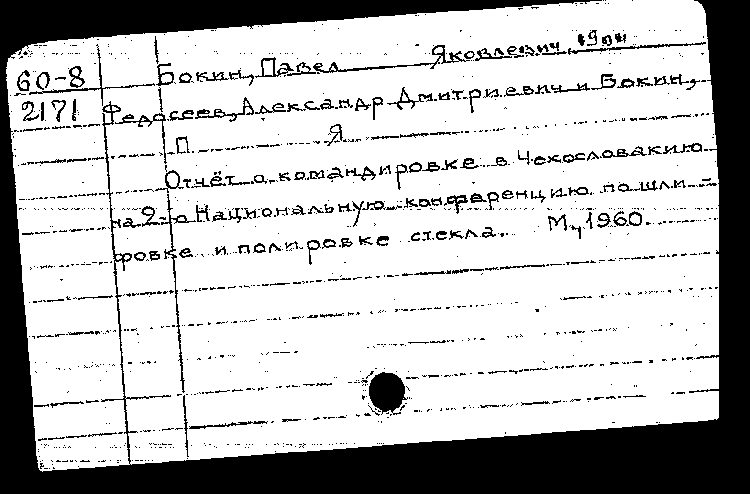 60-8
2171
Бокин, Павел Яковлевич,
Федосеев, Александр Дмитриевич и Бокин,
П Я
Отчёт о командировке в Чехословакию
на 2-ю Национальную конференцию по шли-
фовке и полировке стекла. М., 1960.